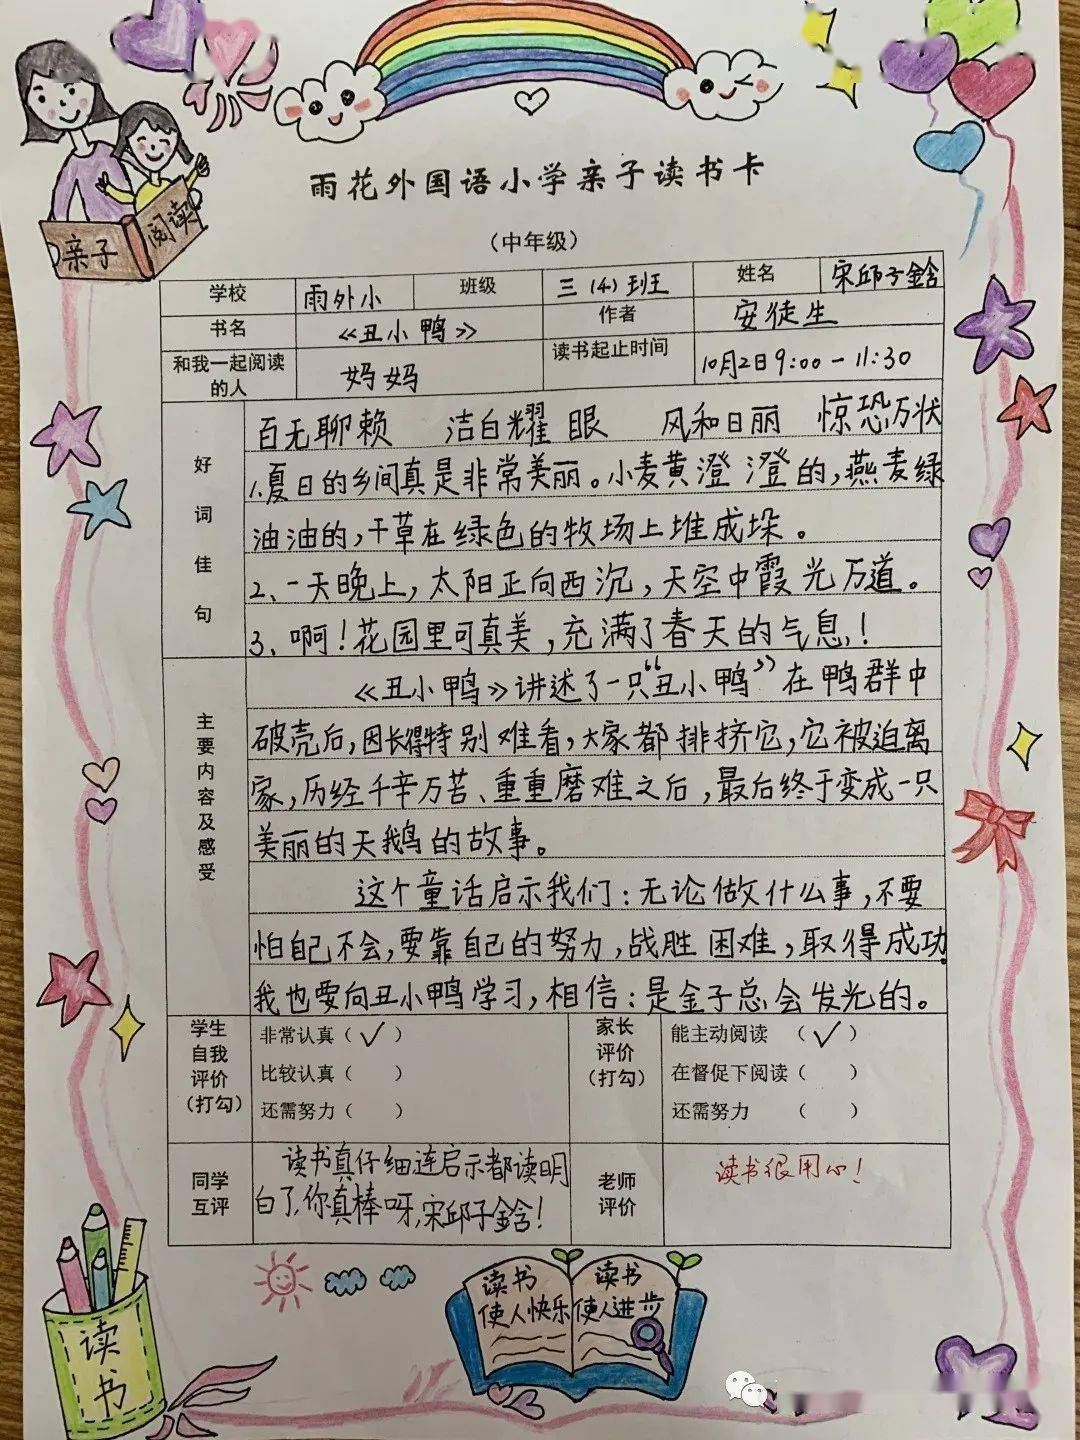 亲子
阅读
雨花外国语小学亲子读书卡
（中年级）
学校 雨外小 班级 三（4）班 姓名 宋邱子鋡
书名 《丑小鸭》 作者 安徒生
和我一起阅读的人 妈妈 读书起止时间 10月2日9:00-11:30
好词佳句
百无聊赖 洁白耀眼 风和日丽 惊恐万状
1.夏日的乡间真是非常美丽。小麦黄澄澄的,燕麦绿
油油的,干草在绿色的牧场上堆成垛。
2、一天晚上,太阳正向西沉,天空中霞光万道。
3、啊!花园里可真美,充满了春天的气息!
主要内容及感受
《丑小鸭》讲述了一只“丑小鸭”在鸭群中
破壳后,因长得特别难看,大家都排挤它,它被迫离
家,历经千辛万苦、重重磨难之后,最后终于变成一只
美丽的天鹅的故事。
这个童话启示我们:无论做什么事,不要
怕自己不会,要靠自己的努力,战胜困难,取得成功
我也要向丑小鸭学习,相信:是金子总会发光的。
学生自我评价（打勾）
非常认真（✓）
比较认真（ ）
还需努力（ ）
家长评价（打勾）
能主动阅读（✓）
在督促下阅读（ ）
还需努力（ ）
同学互评
读书真仔细连启示都读明
白了,你真棒呀,宋邱子鋡!
老师评价
读书很用心!
读书
使人快乐
读书
使人进步
读书